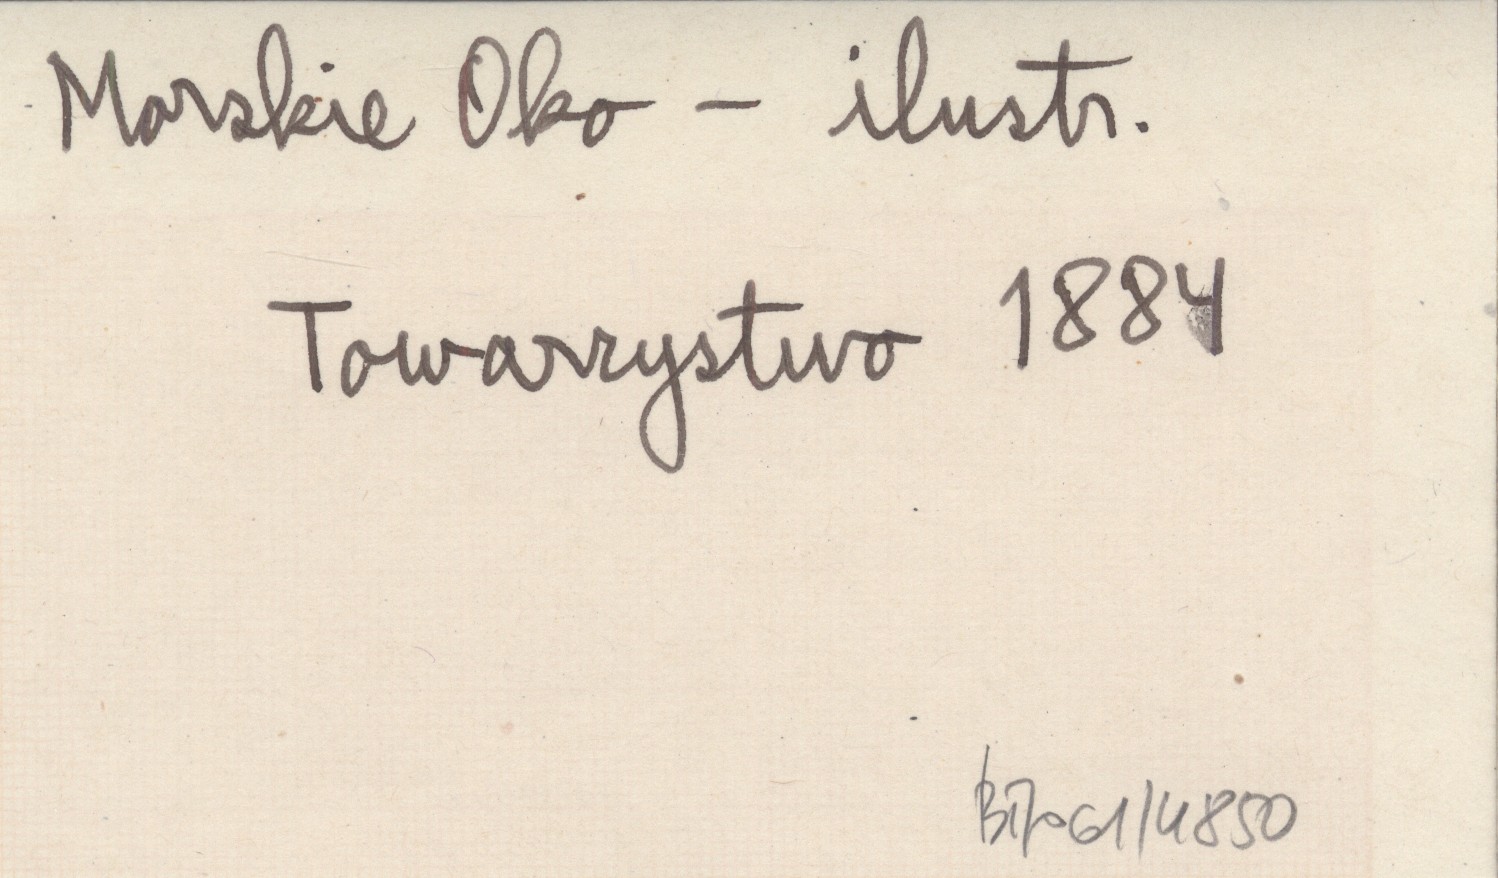 Morskie Oko - ilustr.
Towarzystwo 1884
61/4850